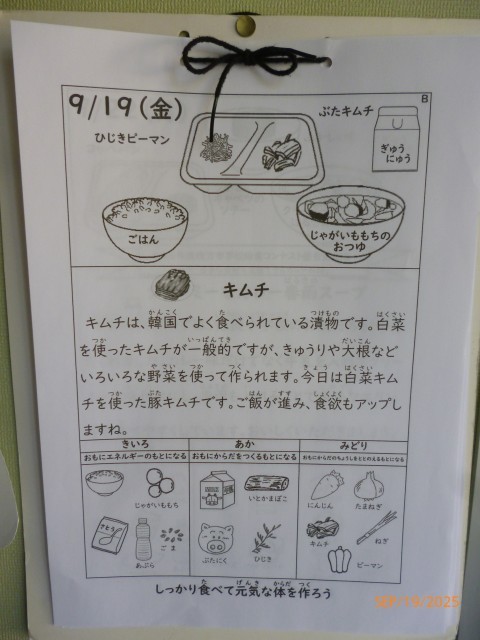 9/19(金)
B
ひじきピーマン
ぶたキムチ
ぎゅうにゅう
ごはん
じゃがいももちの
おつゆ
キムチ
キムチは、韓国でよく食べられている漬物です。白菜
を使ったキムチが一般的ですが、きゅうりや大根など
いろいろな野菜を使って作られます。今日は白菜キム
チを使った豚キムチです。ご飯が進み、食欲もアップし
ますね。
きいろ
あか
みどり
おもにエネルギーのもとになる
おもにからだをつくるもとになる
おもにからだのちょうしをととのえるもとになる
じゃがいももち
いとかまぼこ
にんじん
たまねぎ
さとう
あぶら
ごま
ぶたにく
ひじき
キムチ
ねぎ
ピーマン
しっかり食べて元気な体を作ろう